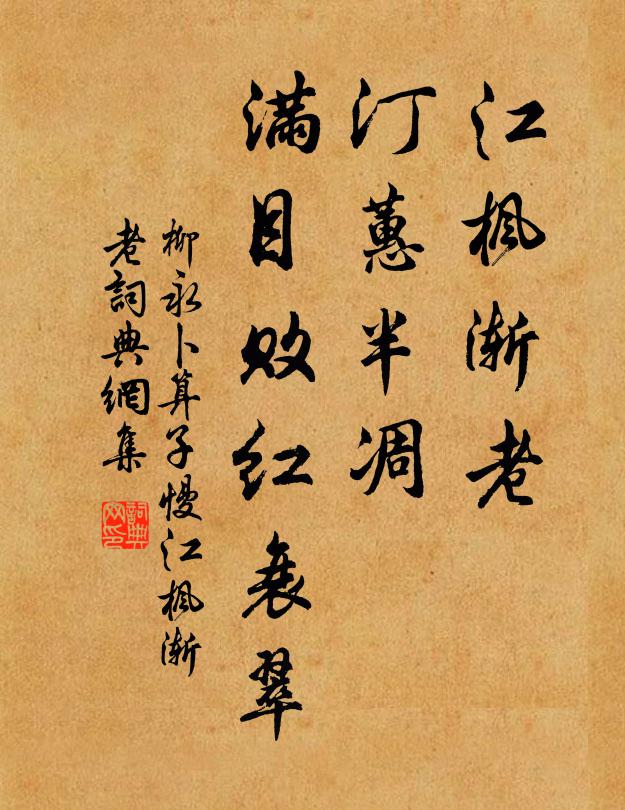 江枫渐老
汀蕙半凋
满目败红衰翠
柳永卜算子慢江枫渐
老詞典網集
詞典
网印